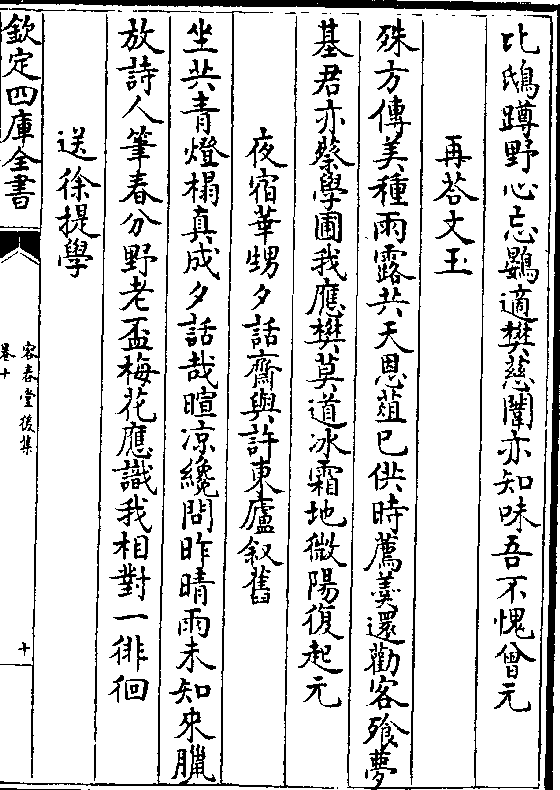 比鴟蹲野心忘鷃適樊慈闈亦知味吾不愧曾元
再荅文玉
殊方傳美種雨露共天恩葅已供時薦羮還勸客飱夢
基君亦蔡學圃我應樊莫道冰霜地微陽復起元
夜宿華甥夕話齋與許東廬叙舊
坐共青燈榻真成夕話哉暄凉纔問昨晴雨未知來臘
放詩人筆春分野老盃梅花應識我相對一徘徊
送徐提學
欽定四庫全書
容春堂後集
卷十
十